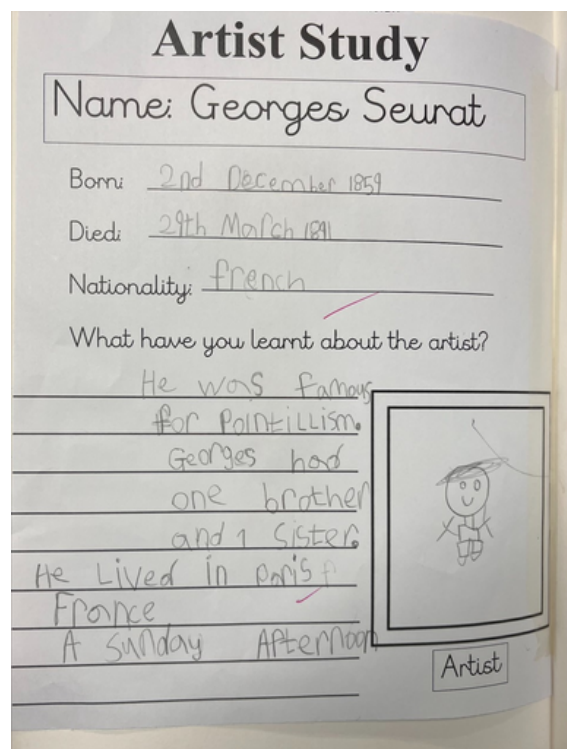 Artist Study
Name: Georges Seurat
Born: 2nd December 1859
Died: 29th March 1891
Nationality: french
What have you learnt about the artist?
He was famous
for Pointillism.
Georges had
one brother
and 1 sister.
He Lived in paris
France
A sunday Afternoon
Artist